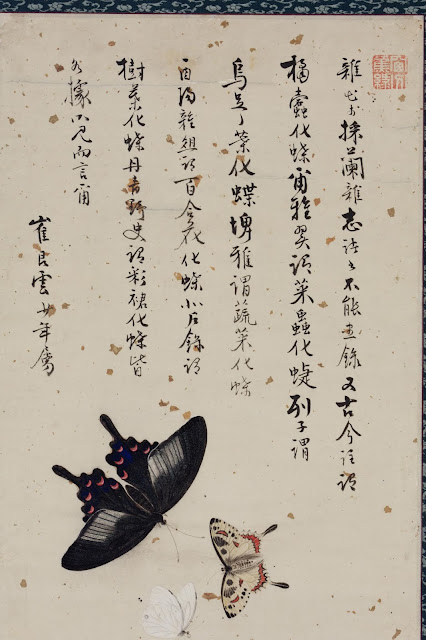 雜出於採蘭雜志不能盡錄又古今注謂
橘蠹化蝶爾雅翼謂菜蟲化蝶列子謂
烏足之葉化蝶埤雅謂蔬菜化蝶
酉陽雜俎謂百合花化蝶北戶錄謂
樹葉化蝶丹青野史謂彩裙化蝶皆
各據所見而言爾
崔雲少年屬